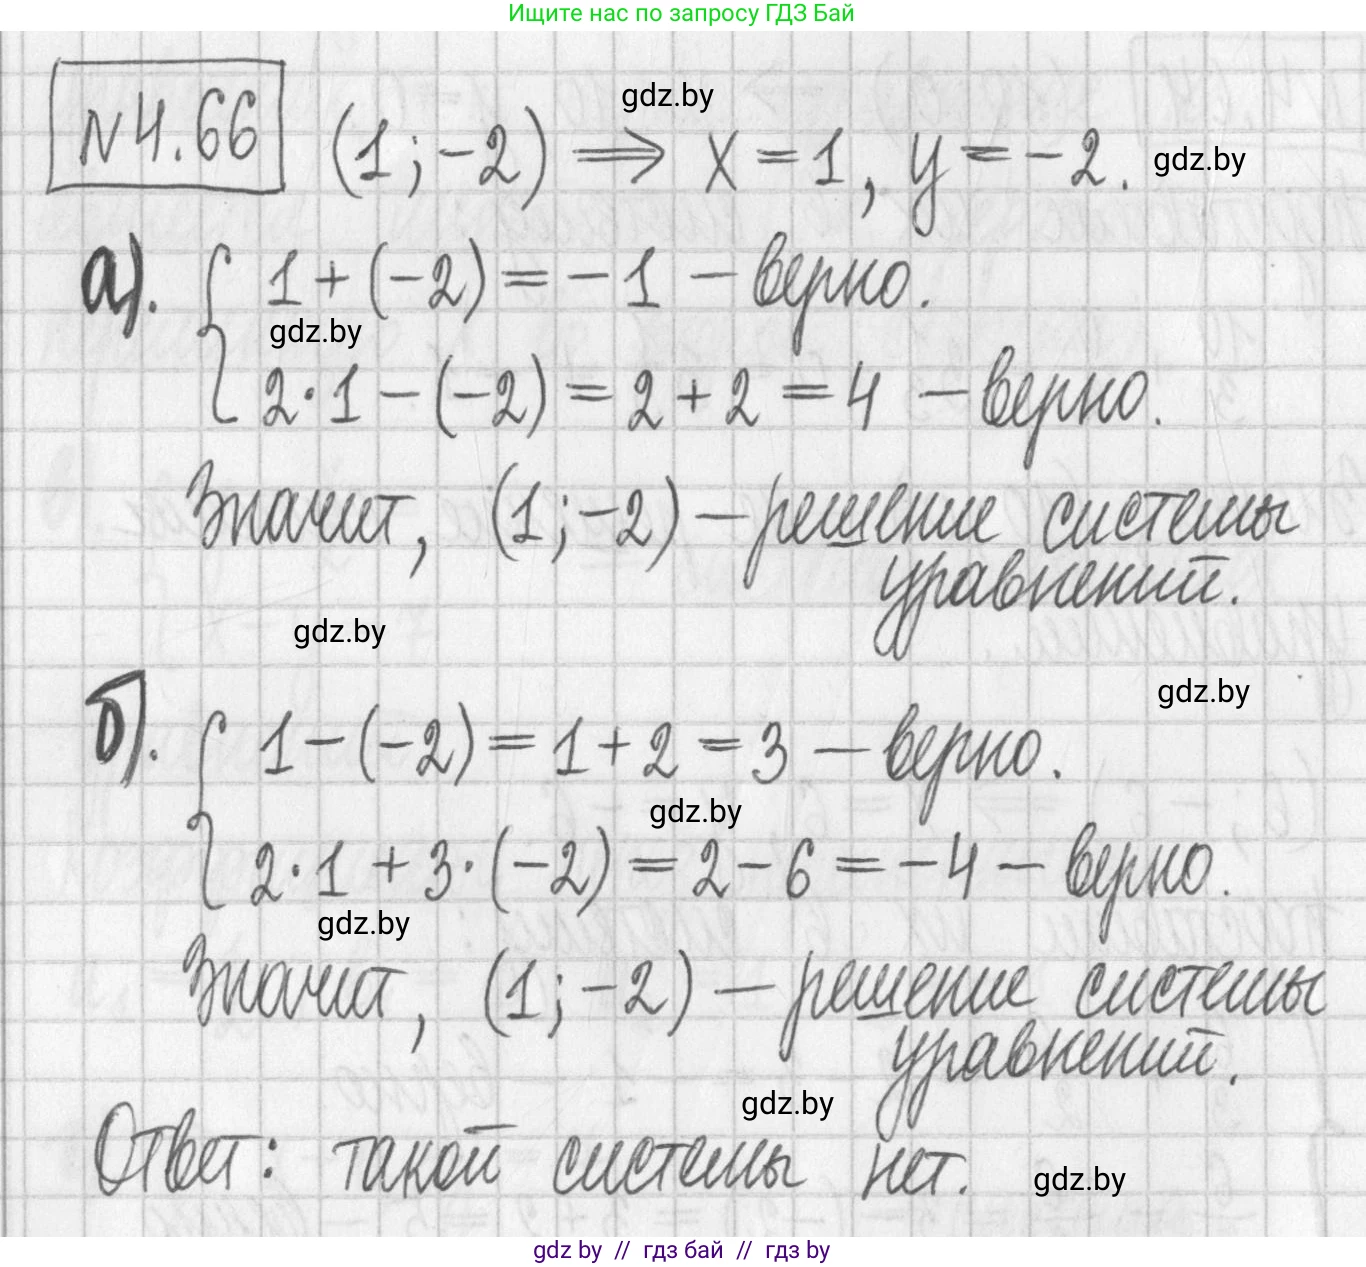 Ищите нас по запросу ГДЗ Бай
gdz.by
№4.66 (1; -2) ⟹ x = 1, y = -2. gdz.by
а). { 1 + (-2) = -1 - верно.
gdz.by
2·1 - (-2) = 2 + 2 = 4 - верно.
Значит, (1; -2) - решение системы
уравнений.
gdz.by
gdz.by
б). { 1 - (-2) = 1 + 2 = 3 - верно.
gdz.by
2·1 + 3·(-2) = 2 - 6 = -4 - верно.
gdz.by
Значит, (1; -2) - решение системы
уравнений.
gdz.by
Ответ: такой системы нет. gdz.by
gdz by // гдз бай // гдз by